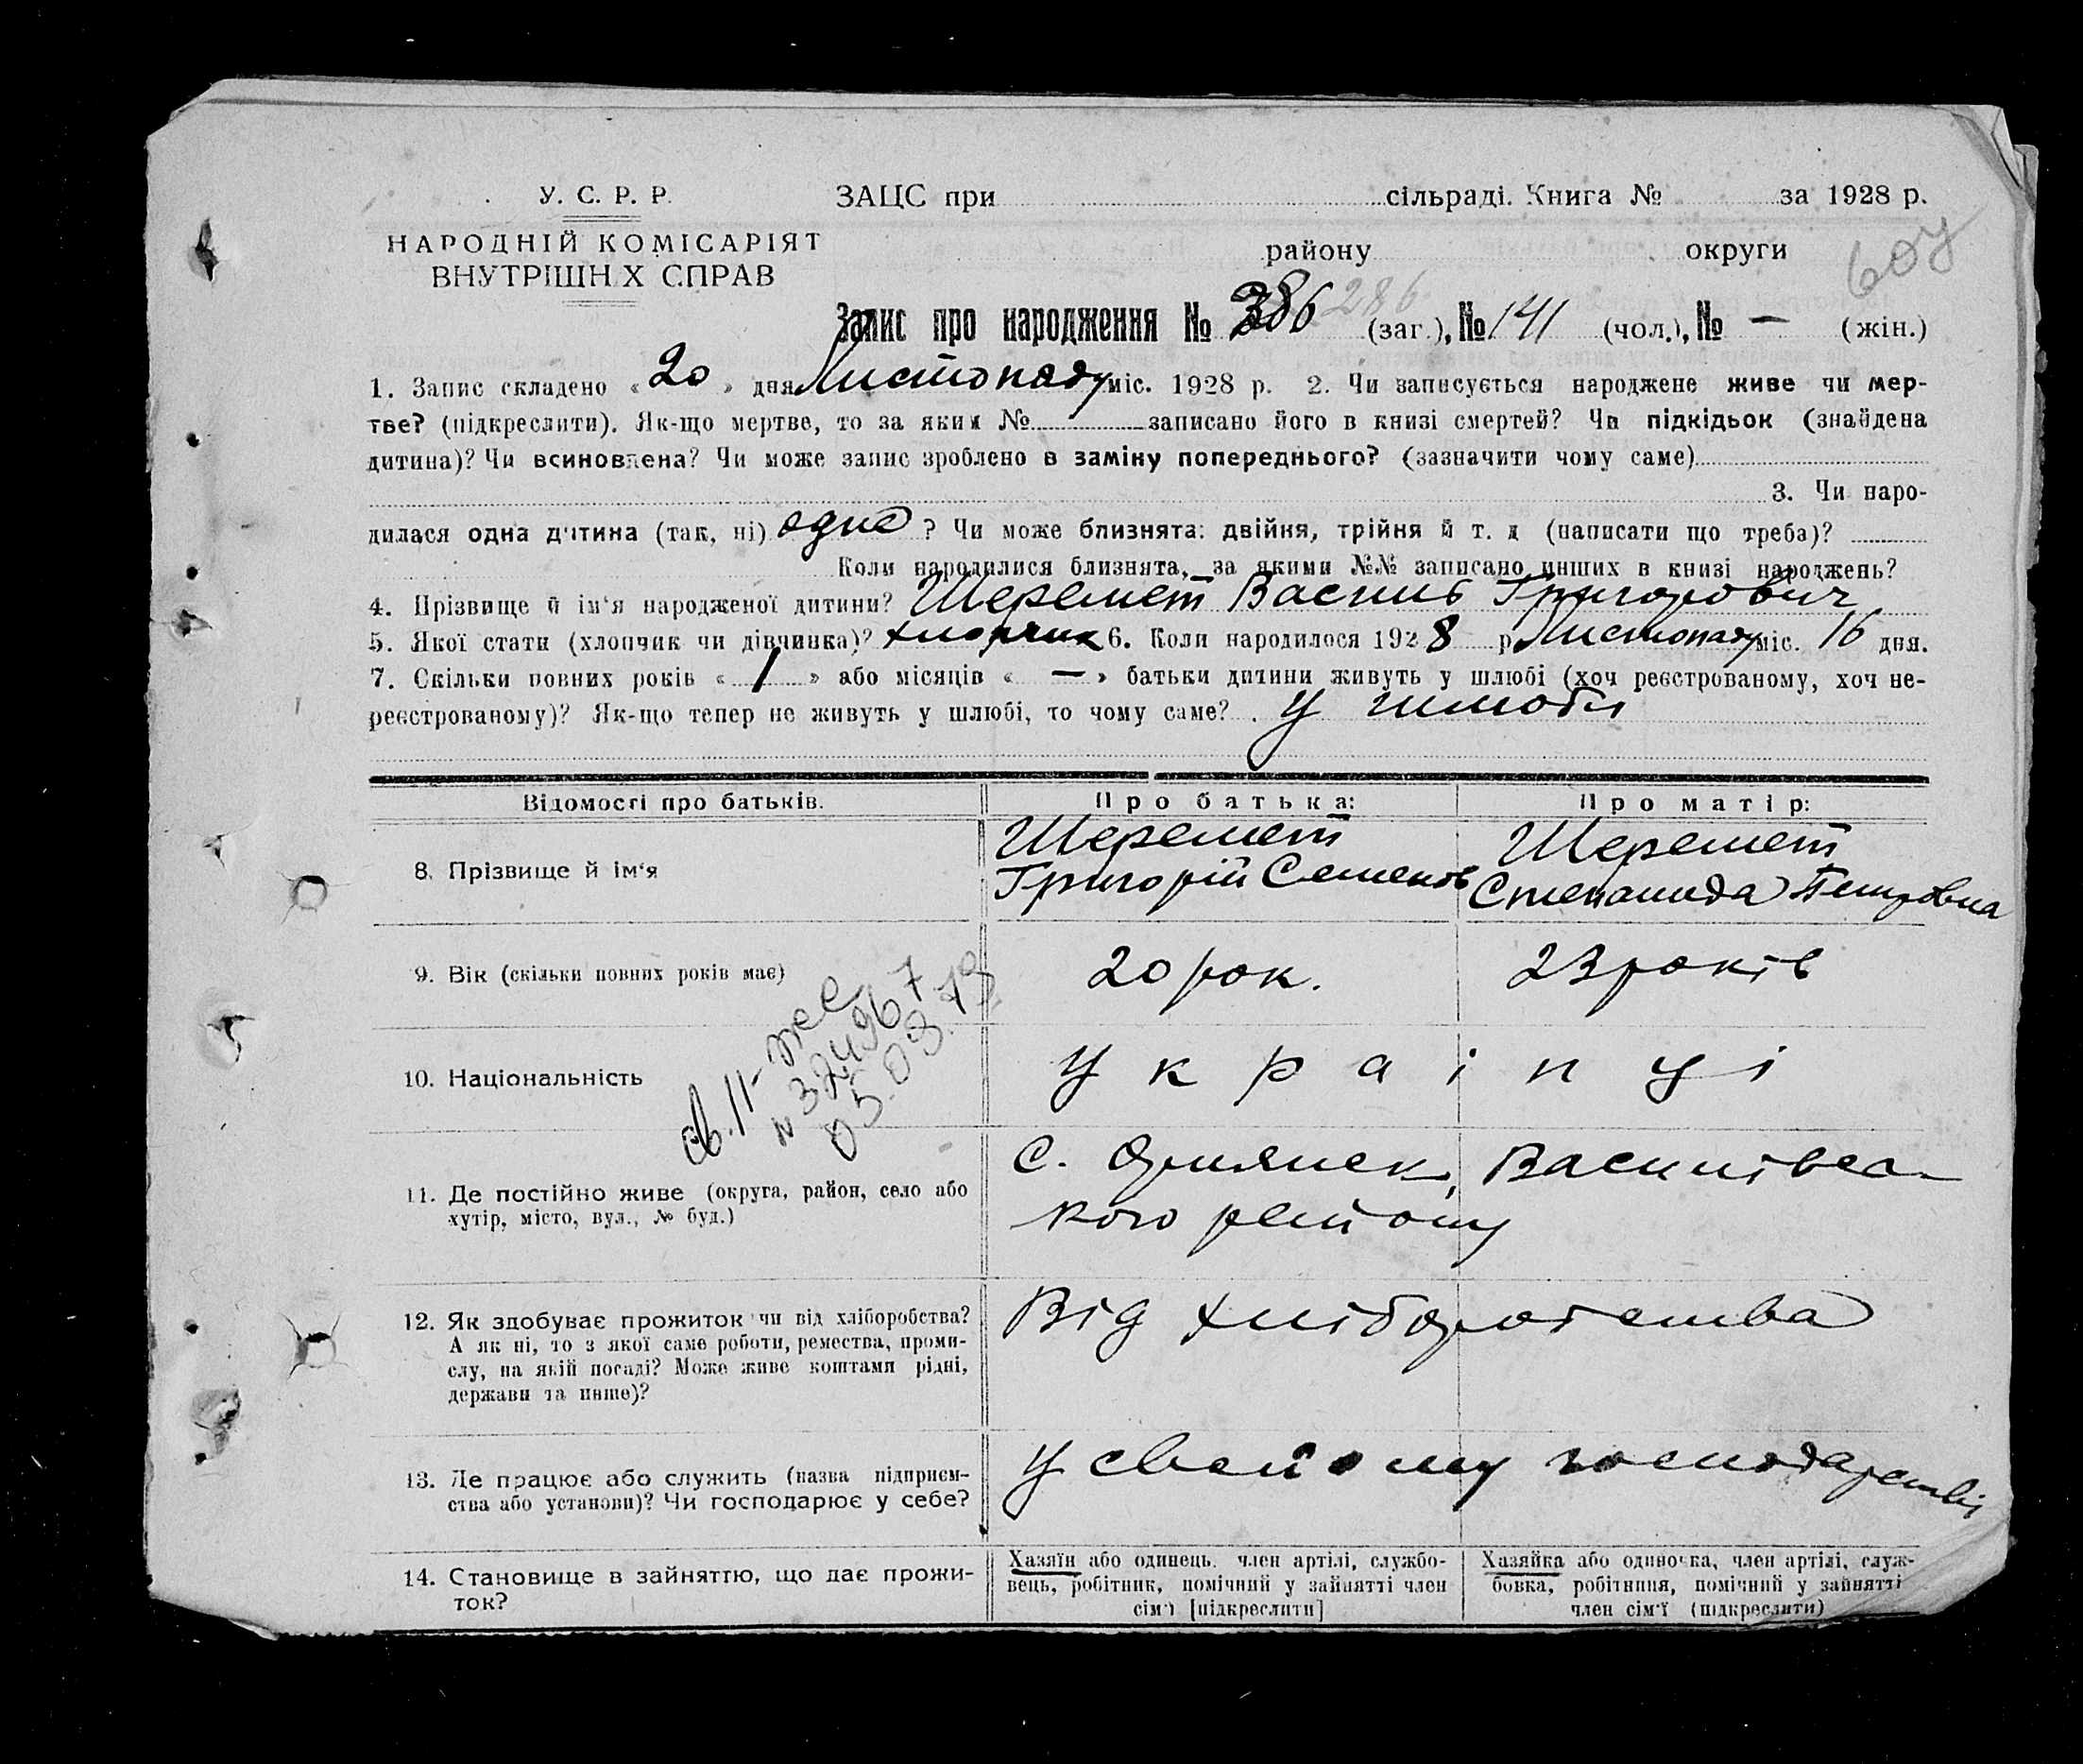 У. С. Р. Р.
НАРОДНІЙ КОМІСАРІЯТ
ВНУТРІШН Х СПРАВ
ЗАЦС при сільраді. Книга № за 1928 р.
району округи
607
Запис про народження № 386 286 (заг.), № 141 (чол.), № — (жін.)
1. Запис складено « 20 » дня Листопаду міс. 1928 р. 2. Чи записується народжене живе чи мер-
тве? (підкреслити). Як-що мертве, то за яким № записано його в книзі смертей? Чи підкідьок (знайдена
дитина)? Чи всиновлена? Чи може запис зроблено в заміну попереднього? (зазначити чому саме)
3. Чи наро-
дилася одна дитина (так, ні) одна ? Чи може близнята: двійня, трійня й т. д (написати що треба)?
Коли народилися близнята, за якими №№ записано инших в книзі народжень?
4. Прізвище й ім'я народженої дитини? Шеремет Василь Григорович
5. Якої стати (хлопчик чи дівчинка)? хлопчик 6. Коли народилося 1928 р Листопаду міс. 16 дня.
7. Скільки повних років « 1 » або місяців « — » батьки дитини живуть у шлюбі (хоч реєстрованому, хоч не-
реєстрованому)? Як-що тепер не живуть у шлюбі, то чому саме? У шлюбі
Відомості про батьків. Про батька: Про матір:
8. Прізвище й ім'я
Шеремет
Григорій Семенов
Шеремет
Степанида Петровна
9. Вік (скільки повних років має) 20 рок. 23 років
10. Національність українці
св. 11-жс
№ 324967
05.09.79
11. Де постійно живе (округа, район, село або
хутір, місто, вул., № буд.)
С. Орлянск, Василівсь-
кого району
12. Як здобуває прожиток чи від хліборобства?
А як ні, то з якої саме роботи, ремества, проми-
слу, на якій посаді? Може живе коштами рідні,
держави та инше)?
Від хліборобства
13. Де працює або служить (назва підприєм-
ства або установи)? Чи господарює у себе?
У свойому господарстві
14. Становище в зайняттю, що дає прожи-
ток?
Хазяїн або одинець. член артілі, службо-
вець, робітник, помічний у зайнятті член
сім'ї [підкреслити]
Хазяйка або одиночка, член артілі, служ-
бовка, робітниця, помічний у зайнятті
член сім'ї (підкреслити)